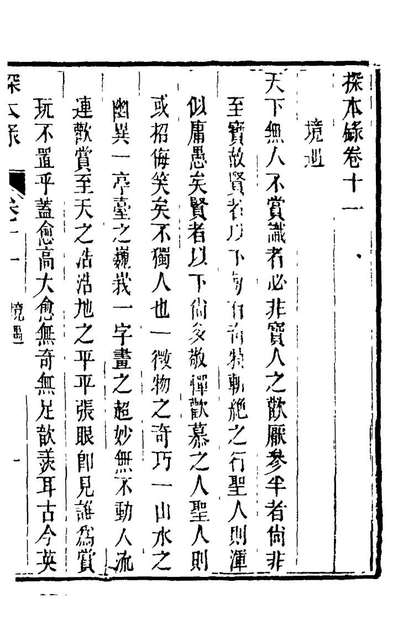 探本錄卷十一
境遇
天下無人不賞識者必非寶人之歡厭參半者尙非
至寶故賢者以下每有崭特斬絶之行聖人則渾
似庸愚矣賢者以下尙多敬憚歡慕之人聖人則
或招侮笑矣不獨人也一微物之奇巧一山水之
幽異一亭臺之巍峩一字畫之超妙無不動人流
連歡賞至天之浩浩地之平平張眼卽見誰爲賞
玩不置乎蓋愈高大愈無奇無足歆羨耳古今英
探本錄
卷十一
境遇
一